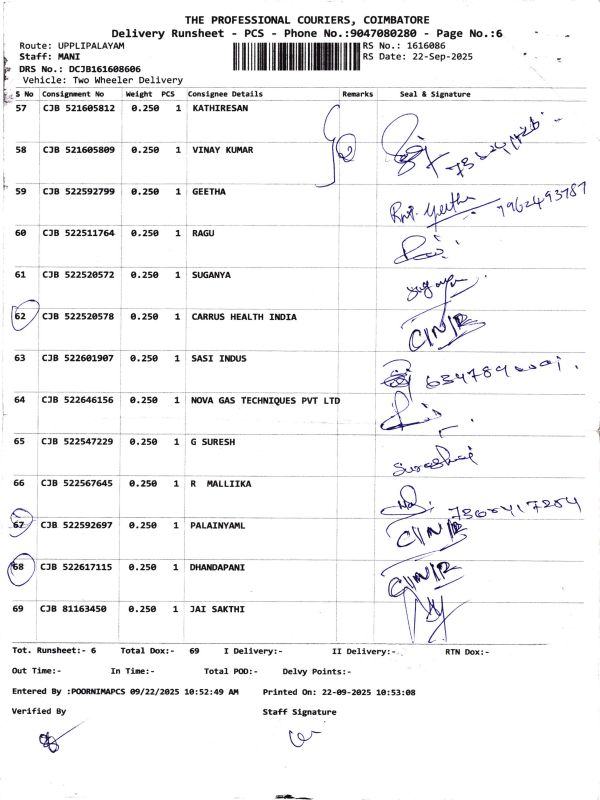 THE PROFESSIONAL COURIERS, COIMBATORE
Delivery Runsheet - PCS - Phone No.:9047080280 - Page No.:6
Route: UPPLIPALAYAM RS No.: 1616086
Staff: MANI RS Date: 22-Sep-2025
DRS No.: DCJB161608606
Vehicle: Two Wheeler Delivery
S No Consignment No Weight PCS Consignee Details Remarks Seal & Signature
57 CJB 521605812 0.250 1 KATHIRESAN
58 CJB 521605809 0.250 1 VINAY KUMAR
59 CJB 522592799 0.250 1 GEETHA 7962493787
60 CJB 522511764 0.250 1 RAGU
61 CJB 522520572 0.250 1 SUGANYA
62 CJB 522520578 0.250 1 CARRUS HEALTH INDIA C/N/R
63 CJB 522601907 0.250 1 SASI INDUS
64 CJB 522646156 0.250 1 NOVA GAS TECHNIQUES PVT LTD
65 CJB 522547229 0.250 1 G SURESH
66 CJB 522567645 0.250 1 R MALLIIKA
67 CJB 522592697 0.250 1 PALAINYAML C/N/R
68 CJB 522617115 0.250 1 DHANDAPANI C/N/R
69 CJB 81163450 0.250 1 JAI SAKTHI
Tot. Runsheet:- 6 Total Dox:- 69 I Delivery:- II Delivery:- RTN Dox:-
Out Time:- In Time:- Total POD:- Delvy Points:-
Entered By :POORNIMAPCS 09/22/2025 10:52:49 AM Printed On: 22-09-2025 10:53:08
Verified By Staff Signature